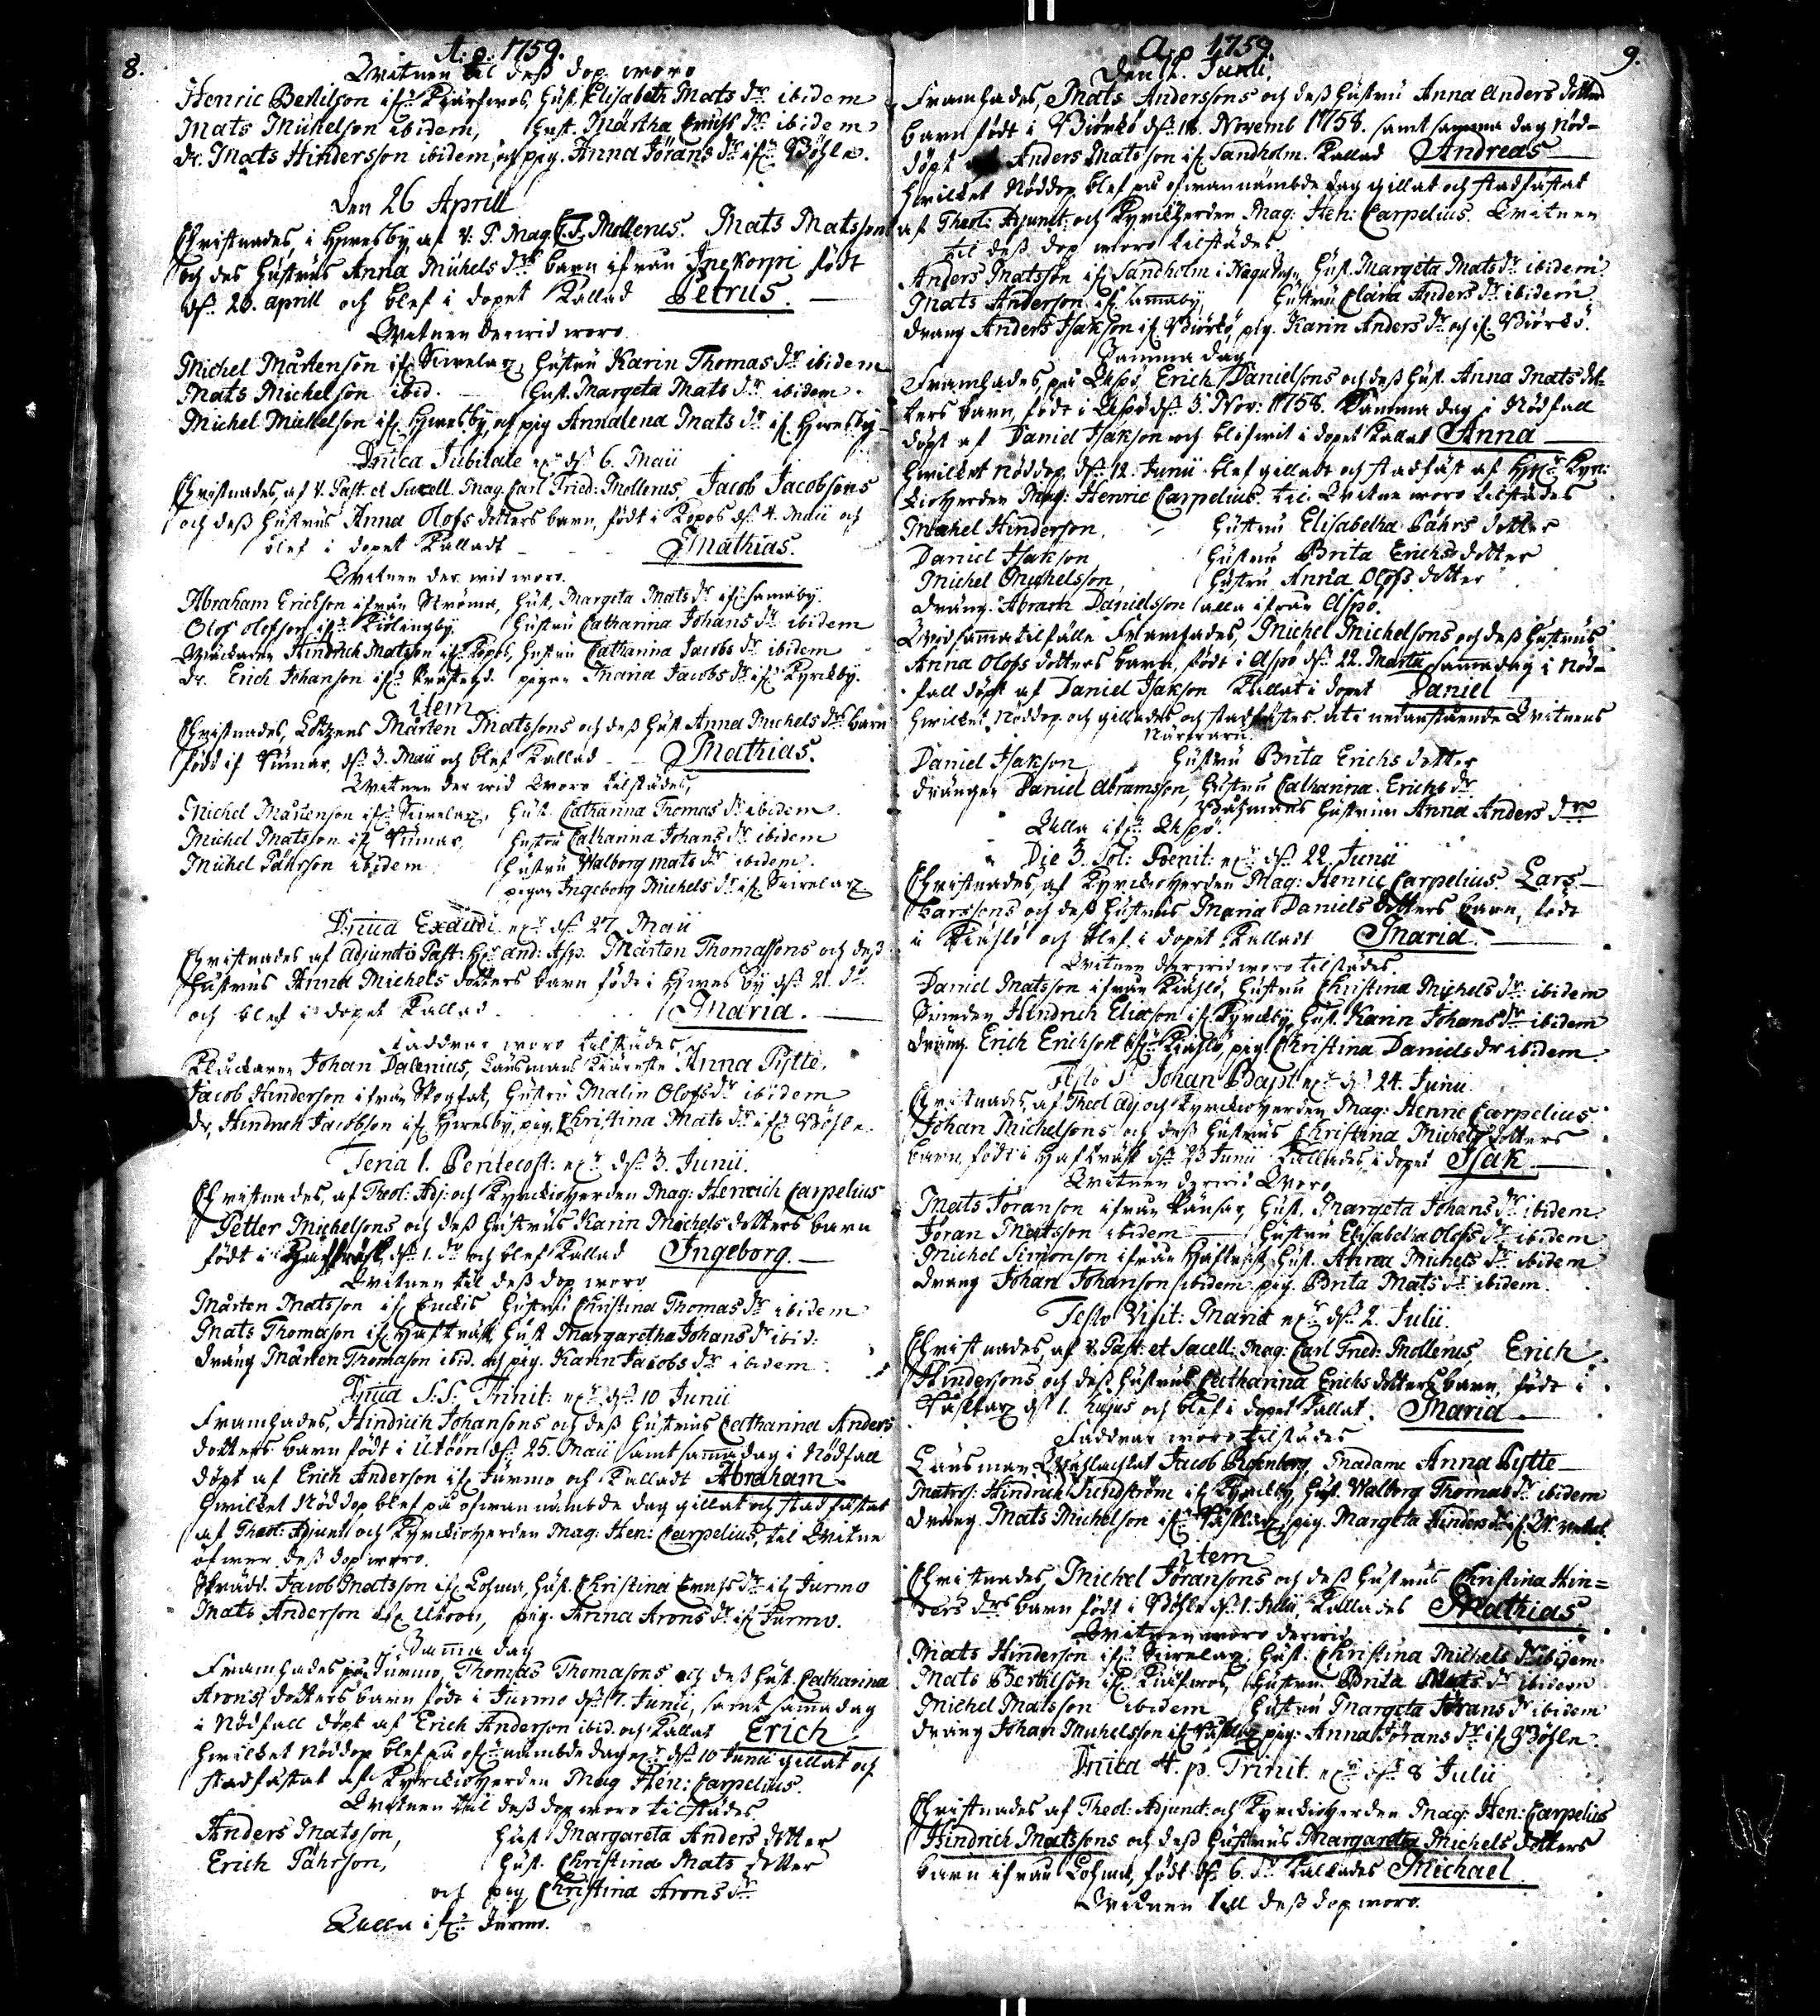 8.
A:o 1759.
Witnen til deß dop woro
Henric Bertilson ifrån Hust. Elisabeth Mats dr ibidem
Mats Michelson ibidem, Hust. Martha Erichs dr ibidem
dr. Mats Hindersson ibidem, och pig. Anna Jörans dr ifr. Böhle.
den 26 Aprill
Christnades i Hwesby af V. P. Mag. C. F. Mollerus. Mats Matsson
och des Hustrus Anna Michels drs barn ifrån Inekorpi födt
d. 20. aprill och blef i dopet Kallad Petrus.
Witnen derwid woro
Michel Mårtenson if. Hustru Karin Thomas dr ibidem
Mats Michelson ibid. Hust. Margeta Mats dr ibidem.
Michel Mickelson if. Hwesby, pig Annalena Mats dr if. Hwesby
Dnica Jubilate d. 6. Maii
Christnades, af V. Past. et Sacell. Mag. Carl Fried: Mollerus, Jacob Jacobsons
och deß Hustrus Anna Olofs dotters barn, födt i Kopos d. 4. Maii och
blef i dopet Kalladt Mathias.
Witnen der wid woro.
Abraham Erichson ifrån Ströma, Hust, Margeta Mats dr if. samaby.
Olof olofson if. Hustru Catharina Johans dr ibidem
Hindrich Matson if. Kopos, Hustru Catharina Jacobs dr ibidem
dr. Erich Johanson if. pigan Maria Jacobs dr if. Kyrckby.
item
Christnades, Mårten Matssons och deß Hust. Anna Michels drs barn
födt if. d. 3. Maii och blef Kallad Mathias.
Witnen der wid woro tilstädes,
Michel Mårtenson if. Hust. Catharina Thomas dr ibidem
Michel Matsson if. Hustru Catharina Johans dr ibidem
Michel Påhrsson ibidem Hustru Walborg mats dr ibidem.
pigan Ingeborg Michels dr if.
Dnica Exaudi d. 27 Maii
Christnades af Adjuncto Past: Mårten Thomassons och deß
Hustrus Anna Michels dotters barn födt i Hwesby d. 21. do
och blef i dopet Kallad Maria.
Faddrar woro tilstädes,
Klåckaren Johan Dalenius, Länsmans Anna Pytte.
Jacob Hinderson ifrån Hustru Malin Olofs dr ibidem
dr, Hindrich Jacobson if. Hwesby, pig. Christina Mats dr if. Böhle.
Feria 1. Pentecost: d. 3. Junii.
Christnades, af Theol: Adj: och Kyrckioherden Mag: Henrich Carpelius
Petter Michelsons och deß Hustrus Karin Michels dotters barn
födt i d. 1. do och blef Kallad Ingeborg.
Witnen til deß dop woro
Mårten Matsson if. Enckis Hustru Christina Thomas dr ibidem
Mats Thomason if. Hust Margaretha Johans dr ibid:
dräng Mårten Thomason ibid. och pig. Karin Jacobs dr ibidem.
Dnica S.S. Trinit: d. 10 Junii
Framhades, Hindrich Johansons och deß Hustrus Catharina Anders
dotters barn födt i Utöön d. 25. Maii samt samma dag i Nödfall
döpt af Erich Anderson if. Jurmo och Kalladt Abraham
Hwilket Nöddop blef på ofwannämbde dag gillat och stadfästat
af Theol: Adjunct och Kyrckioherden Mag: Hen: Carpelius, til Witne
ofwer deß dop woro.
Skrädd. Jacob Matsson if. Lohma, Hust. Christina Erichs dr if. Jurmo
Mats Anderson if. Utöön, pig. Anna Arons dr if. Jurmo.
Samma dag
Framhades på Jurmo, Thomas Thomasons och deß Hust. Catharina
Arons dotters barn födt i Jurmo d. 7. Junii, samt samma dag
i Nödfall döpt af Erich Anderson ibid. och Kallat Erich
Hwilket nöddop blef på nämbde dag d. 10 Junii gillat och
stadfästat af Kyrckioherden Mag Hen: Carpelius.
Witnen til deß dop woro tilstädes
Anders Matsson, Hust Margareta Anders dotter
Erich Påhrson, Hust. Christina Mats dotter
och pig Christina Arons dr
alla if. Jurmo.
9.
A:o 1759
den 12. Junii.
Framhades, Mats Anderssons och deß Hustru Anna Anders dotters
barn födt i Biörkö d. 18. Novemb 1758. samt samma dag nöd-
döpt af Anders Matsson if. Sandholm. Kallad Andreas
Hwilket Nöddop blef på ofwannämbde dag gillat och stadfästat
af Theol: Adjunct: och Kyrckherden Mag: Hen: Carpelius. Witnen
til deß dop woro tilstädes.
Anders Matsson if. Sandholm i Nagu Hust. Margeta Mats dr ibidem
Mats Anderson if. samaby, Hustru Clara Anders dr ibidem.
dräng Anders Isakson if. Biörkö, pig. Karin Anders dr och if. Biörkö.
Samma dag
Framhades, på Aspö, Erich Danielsons och deß Hust. Anna Mats dot-
ters barn, födt i Aspö d. 3. Nov: 1758. Samma dag i Nödfall
döpt af Daniel Isakson och blifwit i dopet Kallat Anna
Hwilket nöddop d. 12. Junii blef gilladt och stadfäst af Hr Kyr-
kioherden Mag: Henric Carpelius. til Witne woro tilstädes
Michel Hinderson, Hustru Elisabetha Påhrs dotter
Daniel Isakson Hustru Brita Erichs dotter
Michel Michelsson, Hustru Anna Olofs dotter
dräng. Abrarh Danielsson alla ifrån Aspö.
Wid samma tilfälle Framhades, Michel Michelsons och deß Hustrus
Anna Olofs dotters barn, födt i Aspö d. 22. Martii samma dag i Nöd-
fall döpt af Daniel Isakson Kallat i dopet Daniel
Hwilket Nöddop och gillades och stadfästes uti nedanstående Witnens
Närwaru.
Daniel Isakson Hustru Brita Erichs dotter
drängen Daniel Abramsson, Hustru Catharina Erichs dr
Hustrun Anna Anders dr
alla if. Aspö.
Die 3. Sol: Poenit: d. 22. Junii
Christnades, af Kyrckioherden Mag: Henric Carpelius. Lars
Larssons och deß Hustrus Maria Daniels dotters barn, födt
i och blef i dopet Kalladt Maria.
Witnen derwid woro tilstädes.
Daniel Matsson ifrån Hustru Christina Michels dr ibidem
Hindrich Eliason if. Kyrckby, Hust. Karin Johans dr ibidem
dräng. Erich Erichson if. pig. Christina Daniels dr ibidem
Festo S. Johan Bapt d. 24. Junii
Christnades, af Theol Adj. och Kyrckioherden Mag: Henric Carpelius
Johan Michelsons och deß Hustrus Christina Michels dotters
barn, födt i d. 23 Junii Kallades i dopet Isak
Witnen derwid woro
Mats Joranson ifrån Hust, Margeta Johans dr ibidem
Jöran Matsson ibidem Hustru Elisabetha Olofs dr ibidem
Michel Simonson ifrån Hust. Anna Michels dr ibidem
dräng Johan Johanson ibidem pig. Brita Mats dr ibidem.
Festo Visit: Mariæ d. 2. Julii.
Christnades, af V. Past: et Sacell: Mag: Carl Fried: Mollerus, Erich
Hindersons och deß Hustrus Catharina Erichs dotters barn, födt i
d. 1. hujus och blef i dopet Kallat. Maria
Faddrar woro tilstädes
Länsman Jacob Rosenberg, Madame Anna Pytte
Hindrich Sundström if. Kyrckby, Hust. Walborg Thomas dr ibidem
dräng. Mats Michelson if. pig. Margeta Hinders dr if.
item
Christnades, Michel Joransons och deß Hustrus Christina Hin=
ders drs barn födt i Böhle d. 1. Julii, Kallades Mathias
Witnen woro derwid
Mats Hinderson if. Hust. Christina Michels dr ibidem
Mats Bertelson if. Hustru Brita Mats dr ibidem
Michel Matsson ibidem Hustru Margeta Jörans dr ibidem
dräng Johan Michelsson if. pig: Anna Jörans dr if. Böhle.
Dnica 4. p. Trinit. d. 8 Julii
Christnades af Theol: Adjunct: och Kyrckioherden Mag: Hen: Carpelius
Hindrich Matssons och deß Hustrus Margareta Michels dotters
barn ifrån Lohma, födt d. 6. do Kallades Michael
Witnen till deß dop woro.